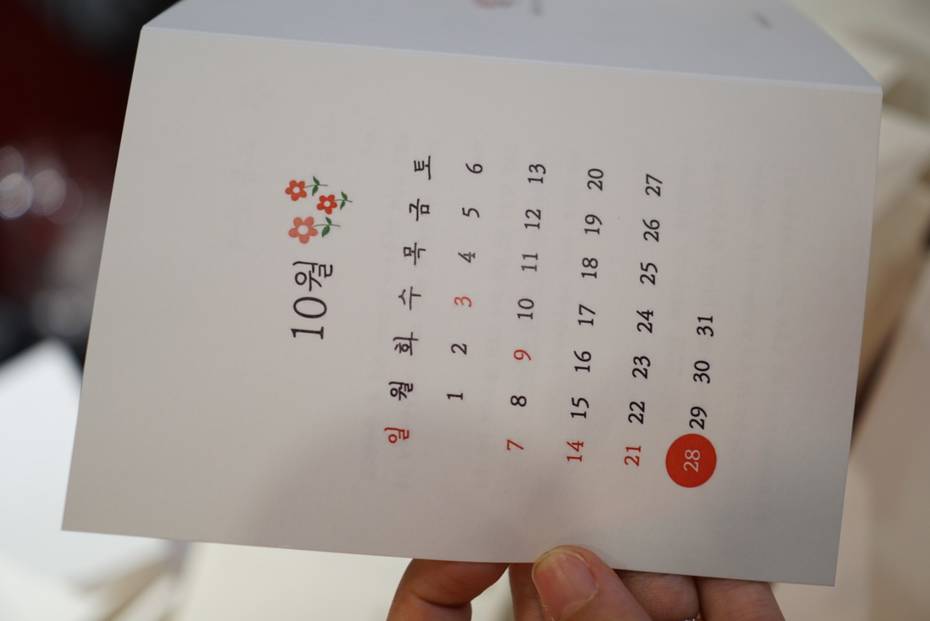 10월
일 월 화 수 목 금 토
1 2 3 4 5 6
7 8 9 10 11 12 13
14 15 16 17 18 19 20
21 22 23 24 25 26 27
28 29 30 31